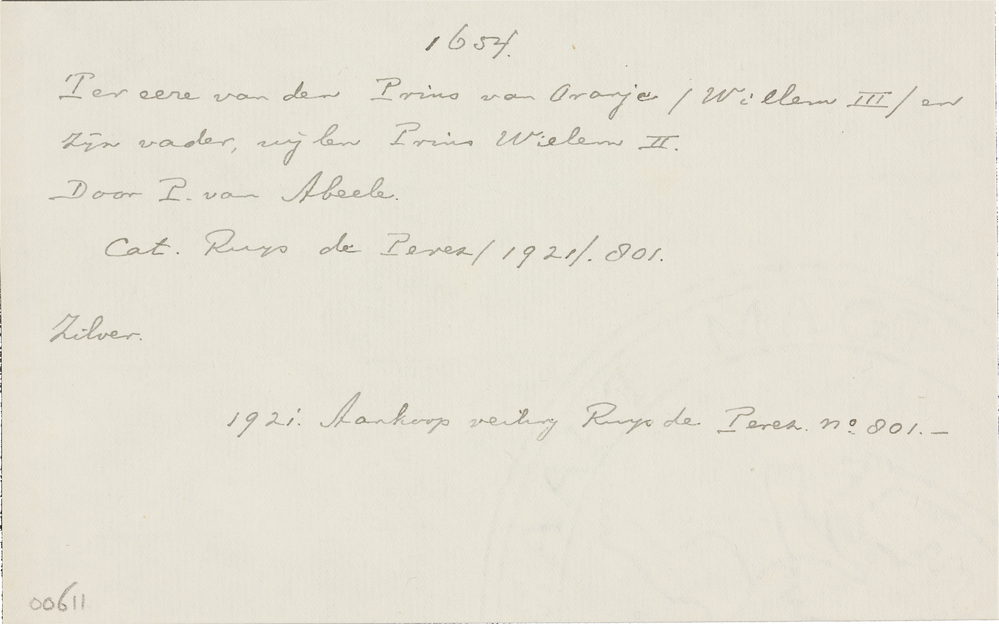 1654.
Ter eere van den Prins van Oranje / Willem III / en
zijn vader, wijlen Prins Willem II.
Door P. van Abeele.
Cat. Ruys de Perez / 1921/. 801.
Zilver.
1921. Aankoop veiling Ruys de Perez. no 801.—
00611